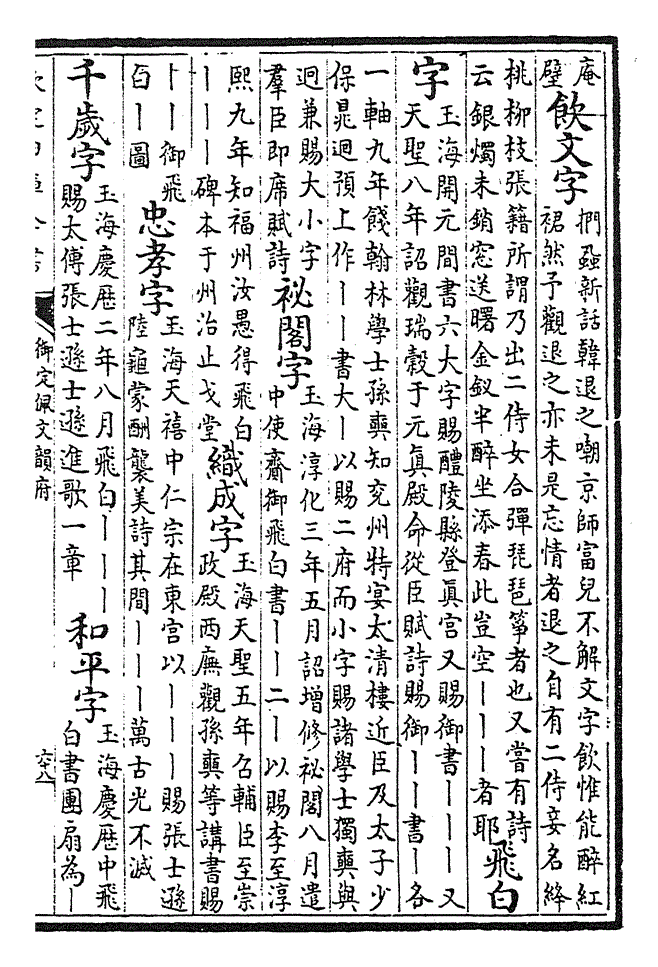 庵
壁
飲文字
捫蝨新話韓退之嘲京師富兒不解文字飲惟能醉紅
裙然予觀退之亦未是忘情者退之自有二侍妾名絳
桃柳枝張籍所謂乃出二侍女合彈琵琶箏者也又嘗有詩
云銀燭未銷窓送曙金釵半醉坐添春此豈空｜｜｜者耶
飛白
字
玉海開元間書六大字賜醴陵縣登眞宮又賜御書｜｜｜又
天聖八年詔觀瑞穀于元眞殿命從臣賦詩賜御｜｜書｜各
一軸九年餞翰林學士孫奭知兖州特宴太清樓近臣及太子少
保晁迥預上作｜｜書大｜以賜二府而小字賜諸學士獨奭與
迥兼賜大小字
羣臣即席賦詩
祕閣字
玉海淳化三年五月詔增修祕閣八月遣
中使齎御飛白書｜｜二｜以賜李至淳
熙九年知福州汝愚得飛白
｜｜｜碑本于州治止戈堂
織成字
玉海天聖五年召輔臣至崇
政殿西廡觀孫奭等講書賜
｜｜御飛
白｜圖
忠孝字
玉海天禧中仁宗在東宮以｜｜｜賜張士遜
陸龜蒙酬襲美詩其間｜｜｜萬古光不滅
千歲字
玉海慶歷二年八月飛白｜｜｜
賜太傅張士遜士遜進歌一章
和平字
玉海慶歷中飛
白書團扇為｜
御定佩文韻府
六十八